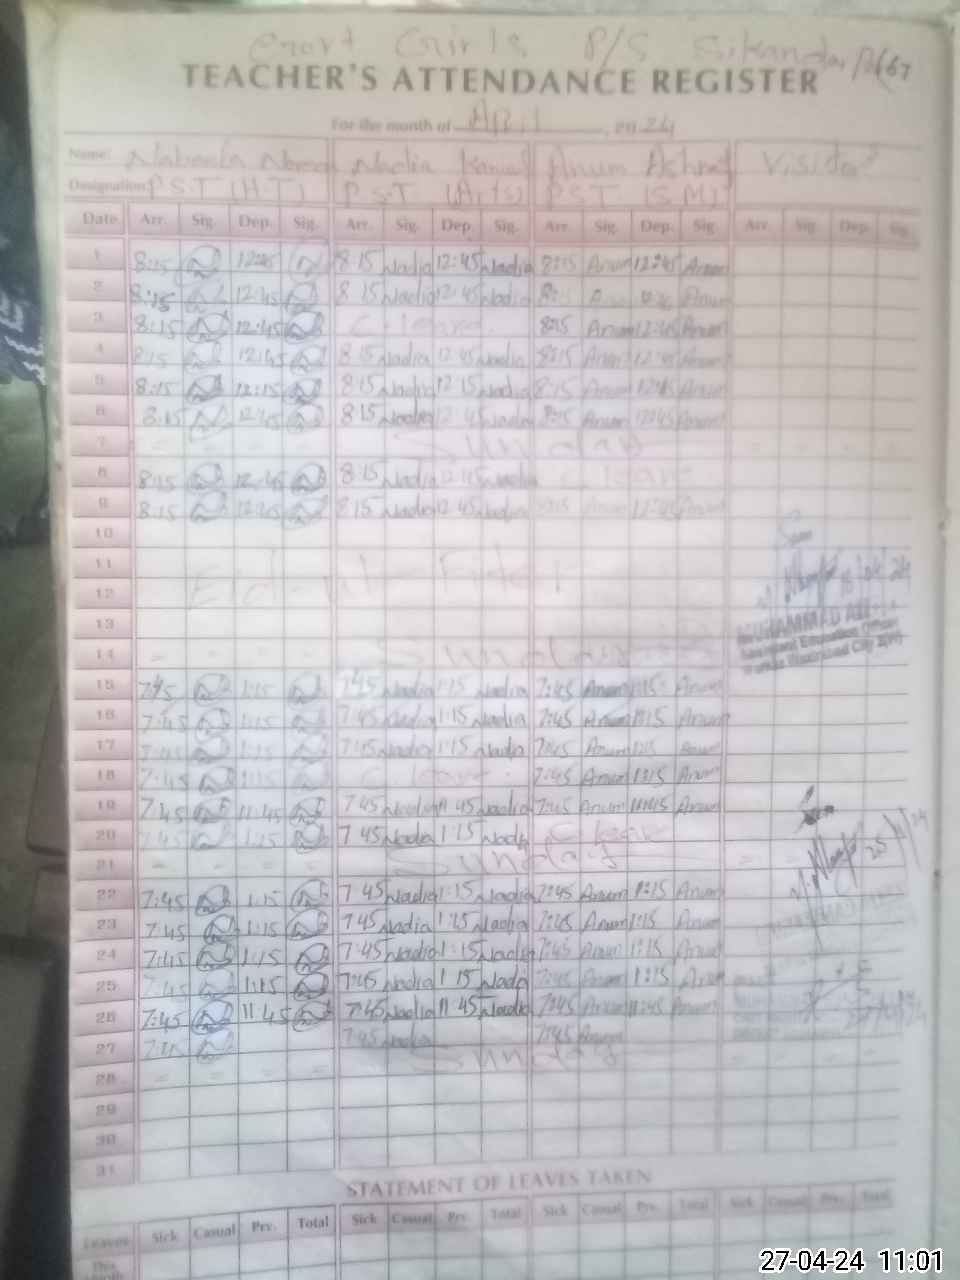 Govt Girls P/S Sikandar
TEACHER'S ATTENDANCE REGISTER
For the month of April, 2024
Name: Nadia Kanwal Anum Ashraf Visitors
Designation: P.S.T (H.T) P.S.T. (Arts) P.S.T (S.M)
Date Arr. Sig. Dep. Sig. Arr. Sig. Dep. Sig. Arr. Sig. Dep. Sig. Arr. Sig. Dep. Sig.
1 8:15 12:45 8 15 Nadia 12:45 Nadia 8:15 Anum 12:45 Anum
2 8:15 12:45 8 15 Nadia 12 45 Nadia 8:15 Anum Anum
3 8:15 12:45 C. leave. 8:15 Anum 12:45 Anum
4 8:15 12:45 8 15 Nadia 12 45 Nadia 8:15 Anum 12:45 Anum
5 8:15 12:15 8 15 Nadia 12 15 Nadia 8:15 Anum 12:45 Anum
6 8:15 12:45 8 15 Nadia 12 45 Nadia 8:15 Anum 12:45 Anum
7 Sunday
8 8:15 12:45 8 15 Nadia 12 45 Nadia C leave
9 8:15 12:45 8 15 Nadia 12 45 Nadia 8:15 Anum 12:45 Anum
10
11 Eid-ul-Fiter
12
13
14 Sunday
MUHAMMAD ALI
Assistant Education Officer
15 7:45 1:15 7 45 Nadia 1:15 Nadia 7:45 Anum 1:15 Anum
16 7:45 1:15 7 45 Nadia 1:15 Nadia 7:45 Anum 1:15 Anum
17 7:45 1:15 7:45 Nadia 1:15 Nadia 7:45 Anum Anum
18 7:45 1:15 C. leave. 7:45 Anum 1:15 Anum
19 7:45 11:45 7 45 Nadia 11 45 Nadia 7:45 Anum 11:45 Anum
20 7:45 1:15 7 45 Nadia 1:15 Nadia C leave
21 Sunday
22 7:45 1:15 7 45 Nadia 1:15 Nadia 7:45 Anum 1:15 Anum
23 7:45 1:15 7 45 Nadia 1:15 Nadia 7:45 Anum 1:15 Anum
24 7:45 1:15 7:45 Nadia 1:15 Nadia 7:45 Anum 1:15 Anum
25 7:45 1:15 7:45 Nadia 1 15 Nadia 7:45 Anum 1:15 Anum
26 7:45 11:45 7:45 Nadia 11 45 Nadia 7:45 Anum 11:45 Anum
27 7:45 7 45 Nadia 7:45 Anum
28 Sunday
29
30
31
STATEMENT OF LEAVES TAKEN
Leaves Sick Casual Prv. Total Sick Casual Prv. Total Sick Casual Prv. Total Sick Casual Prv. Total
This
27-04-24 11:01